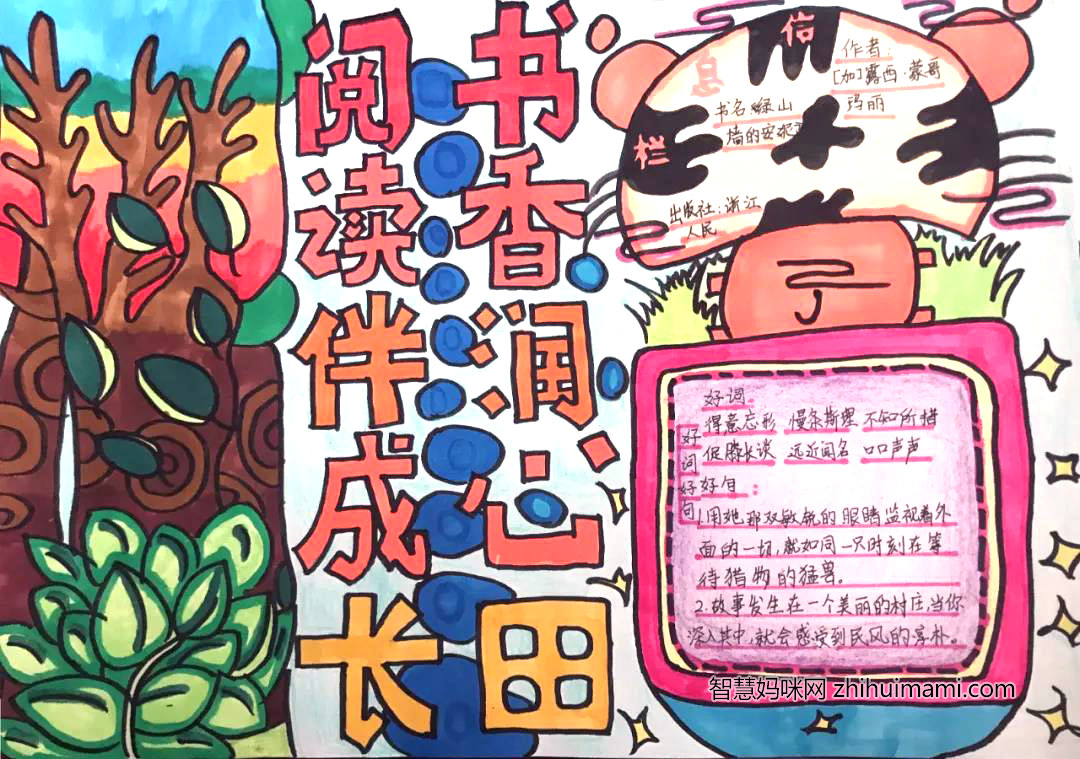 阅读伴成长
书香润心田
信息栏
作者:
[加]露西·蒙哥
玛丽
书名:绿山
墙的安
出版社:浙江
人民
好词好句
好词:
得意忘形 慢条斯理 不知所措
促膝长谈 远近闻名 口口声声
好句:
1.用她那双敏锐的眼睛监视着外
面的一切,就如同一只时刻在等
待猎物的猛兽。
2.故事发生在一个美丽的村庄,当你
深入其中,就会感受到民风的淳朴。
智慧妈咪网 zhihuimami.com